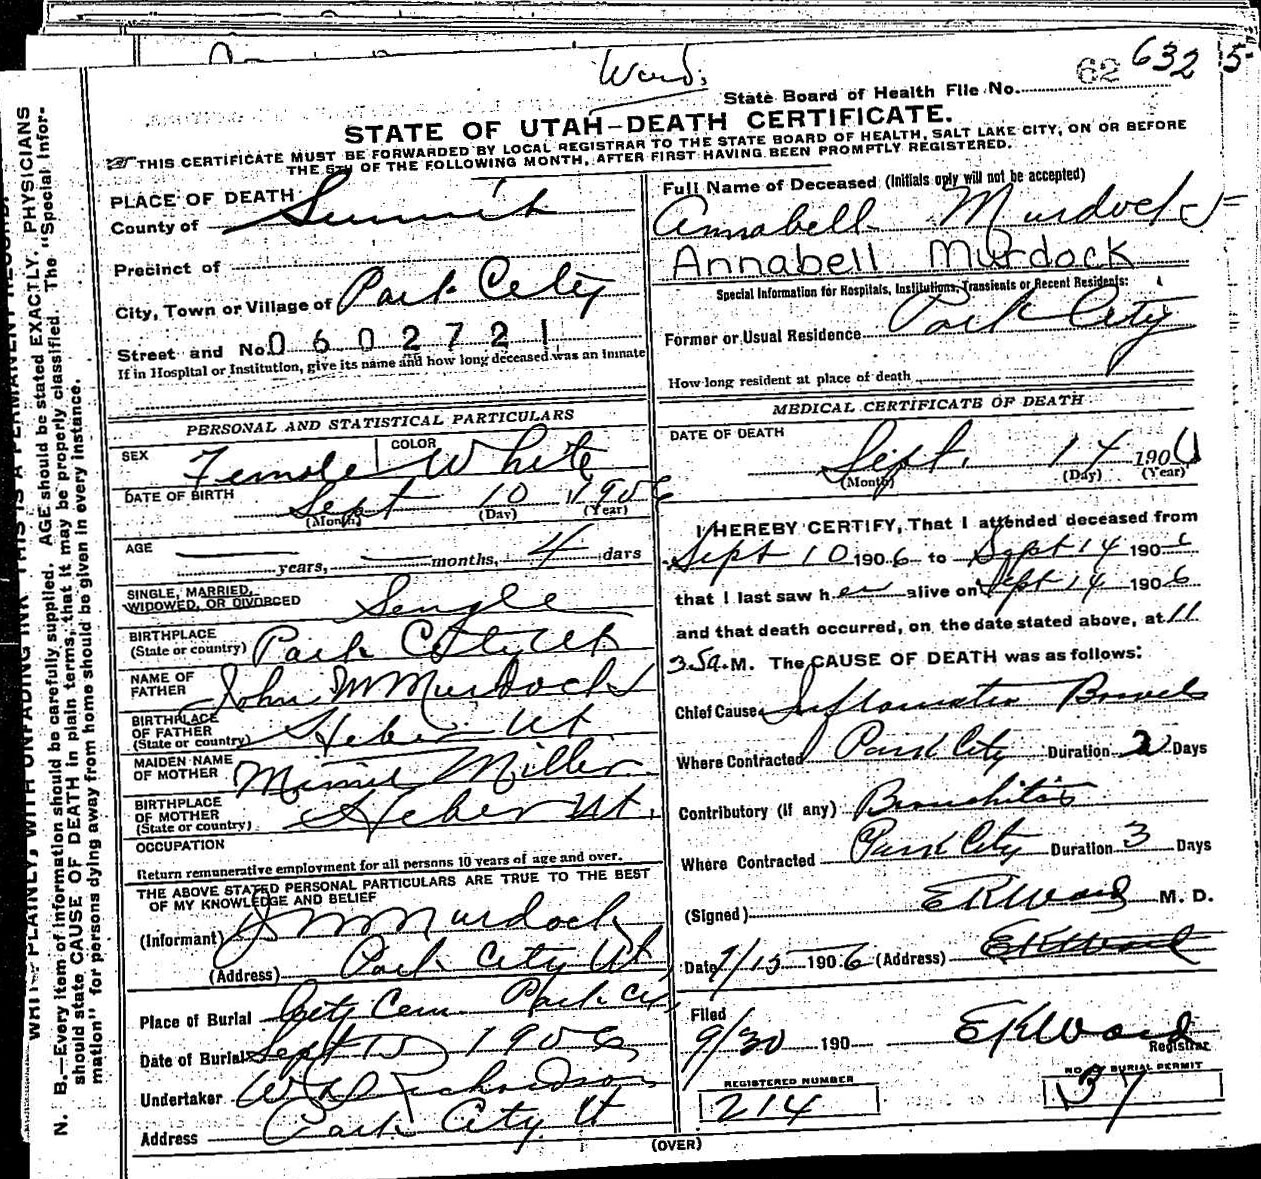 Ward.
62 632 5
State Board of Health File No.
STATE OF UTAH—DEATH CERTIFICATE.
THIS CERTIFICATE MUST BE FORWARDED BY LOCAL REGISTRAR TO THE STATE BOARD OF HEALTH, SALT LAKE CITY, ON OR BEFORE
THE 5TH OF THE FOLLOWING MONTH, AFTER FIRST HAVING BEEN PROMPTLY REGISTERED.
PLACE OF DEATH
County of Summit
Precinct of
City, Town or Village of Park City
Street and No. 0 6 0 2 7 2 1
If in Hospital or Institution, give its name and how long deceased was an Inmate
PERSONAL AND STATISTICAL PARTICULARS
SEX Female COLOR White
DATE OF BIRTH Sept 10 1906
(Month) (Day) (Year)
AGE years, months, 4 days
SINGLE, MARRIED,
WIDOWED, OR DIVORCED Single
BIRTHPLACE
(State or country) Park City Ut
NAME OF
FATHER John M Murdock
BIRTHPLACE
OF FATHER
(State or country) Heber Ut
MAIDEN NAME
OF MOTHER Minnie Miller
BIRTHPLACE
OF MOTHER
(State or country) Heber Ut.
OCCUPATION
Return remunerative employment for all persons 10 years of age and over.
THE ABOVE STATED PERSONAL PARTICULARS ARE TRUE TO THE BEST
OF MY KNOWLEDGE AND BELIEF
(Informant) J M Murdock
(Address) Park City Ut
Place of Burial City Cem Park City
Date of Burial Sept 15 1906
Undertaker Richardson
Address Park City Ut
Full Name of Deceased (Initials only will not be accepted)
Annabell Murdock
Annabell Murdock
Special Information for Hospitals, Institutions, Transients or Recent Residents:
Former or Usual Residence Park City
How long resident at place of death
MEDICAL CERTIFICATE OF DEATH
DATE OF DEATH
Sept. 14 1906
(Month) (Day) (Year)
I HEREBY CERTIFY, That I attended deceased from
Sept 10 1906 to Sept 14 1906
that I last saw her alive on Sept 14 1906
and that death occurred, on the date stated above, at 11
M. The CAUSE OF DEATH was as follows:
Chief Cause Inflamation Bowels
Where Contracted Park City Duration 2 Days
Contributory (if any) Bronchitis
Where Contracted Park City Duration 3 Days
(Signed) EKWard M. D.
Date 9/15 1906 (Address) EKWard
Filed
9/30 190 EKWard
Registrar
REGISTERED NUMBER
214
NO. BURIAL PERMIT
37
(OVER)
N. B.—Every item of information should be carefully supplied. AGE should be stated EXACTLY. PHYSICIANS
should state CAUSE OF DEATH in plain terms, that it may be properly classified. The "Special Infor-
mation" for persons dying away from home should be given in every instance.